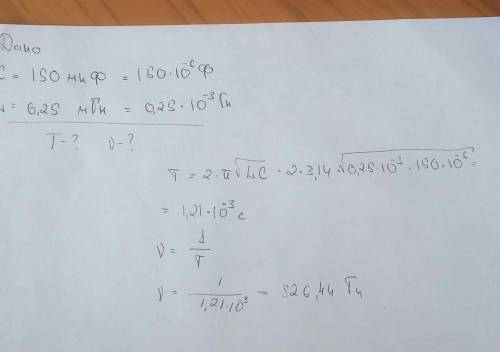 Дано
C = 150 мкФ = 150·10⁻⁶ Ф
L = 0,25 мГн = 0,25·10⁻³ Гн
T-? ν-?
T = 2·π√LC · 2·3,14·√0,25·10⁻³·150·10⁻⁶ =
= 1,21·10⁻³ с
ν = 1/T
ν = 1/1,21·10³ = 826,44 Гц